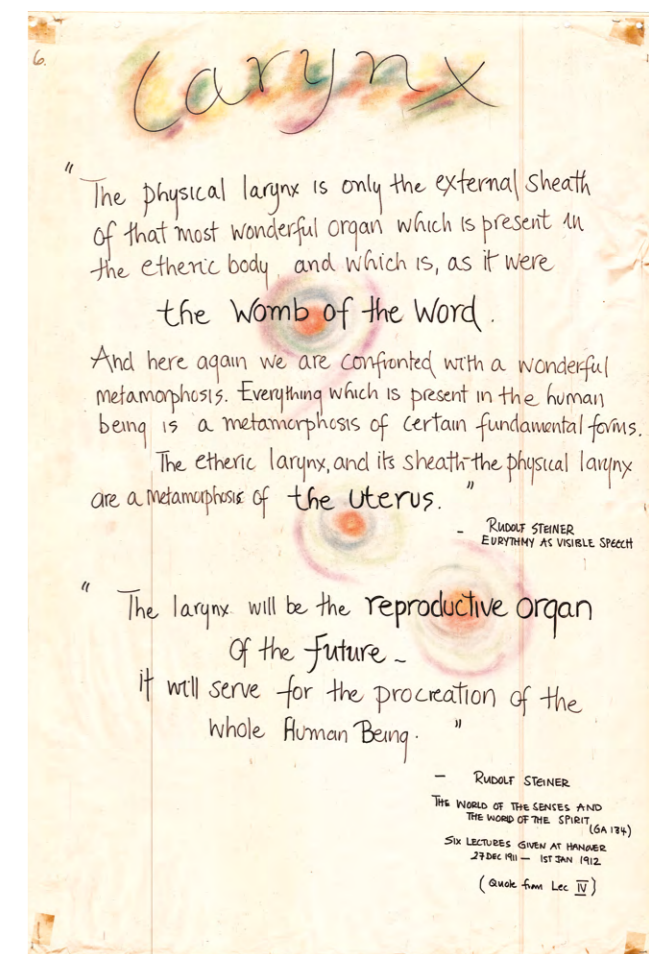 6.
Larynx
" The physical larynx is only the external sheath
of that most wonderful organ which is present in
the etheric body and which is, as it were
the Womb of the Word.
And here again we are confronted with a wonderful
metamorphosis. Everything which is present in the human
being is a metamorphosis of certain fundamental forms.
The etheric larynx, and its sheath-the physical larynx
are a metamorphosis of the uterus. "
- RUDOLF STEINER
EURYTHMY AS VISIBLE SPEECH
" The larynx will be the reproductive organ
Of the future -
it will serve for the procreation of the
whole Human Being. "
- RUDOLF STEINER
THE WORLD OF THE SENSES AND
THE WORLD OF THE SPIRIT
(GA 134)
SIX LECTURES GIVEN AT HANOVER
27 DEC 1911 - 1ST JAN 1912
(Quote from Lec IV)